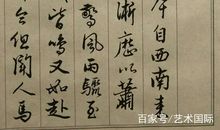 自西南来
淅歷以蕭
驚風雨驟至
皆鳴又如赴
令但聞人馬
百家号/艺术国际